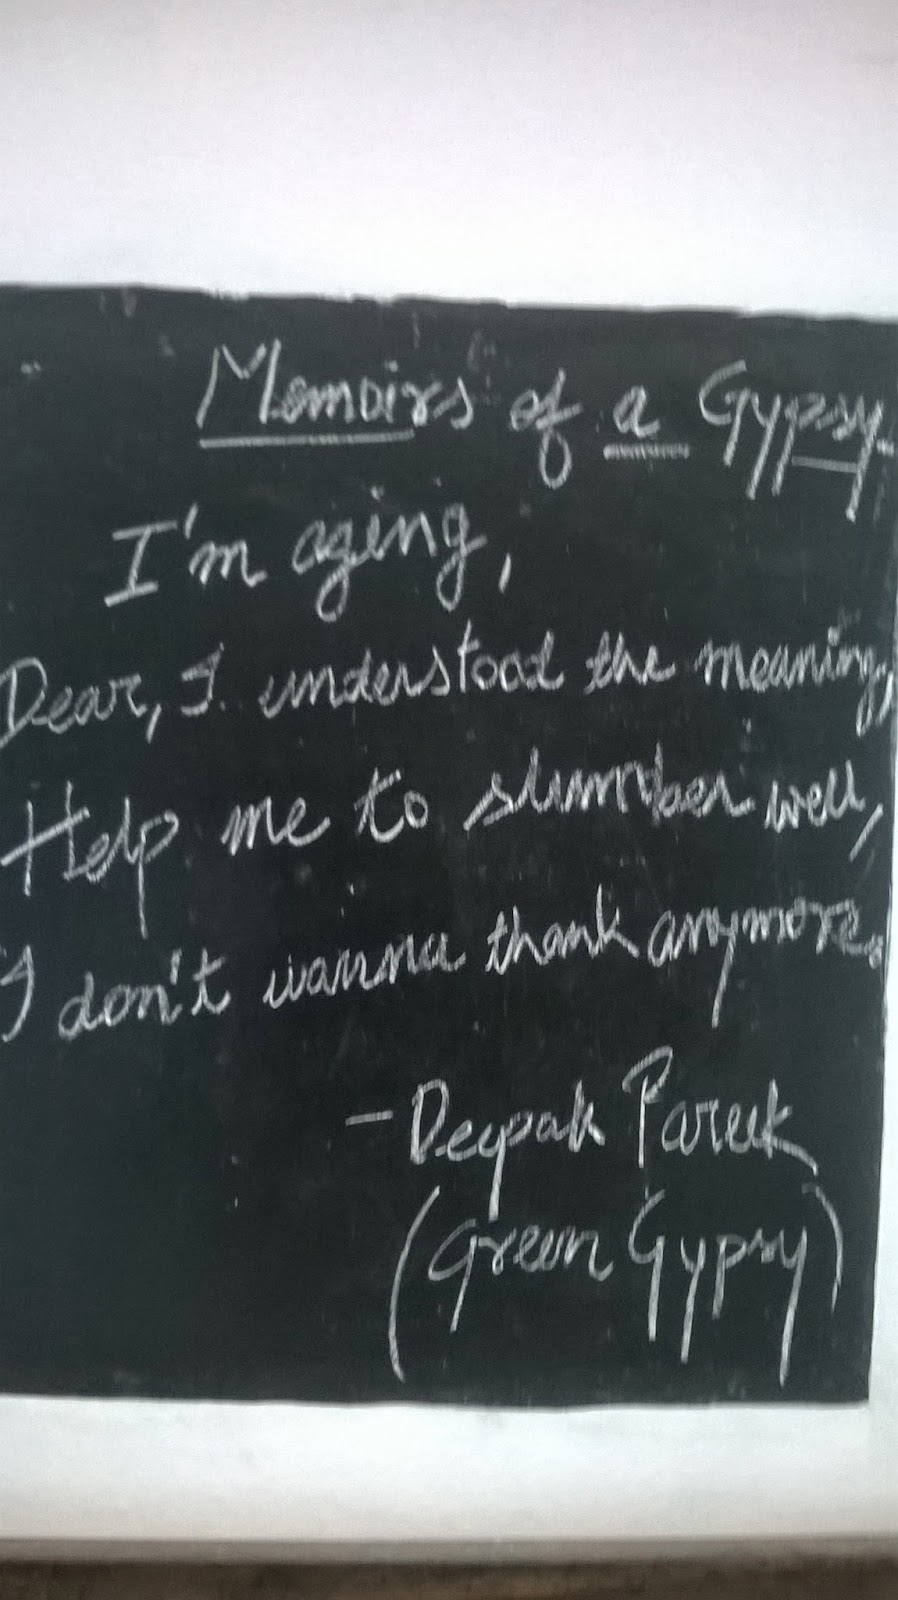 Memoirs of a Gypsy
I'm aging,
Dear, I understood the meaning,
Help me to slumber well,
I don't wanna thank anymore.
- Deepak Pareek
(Green Gypsy)